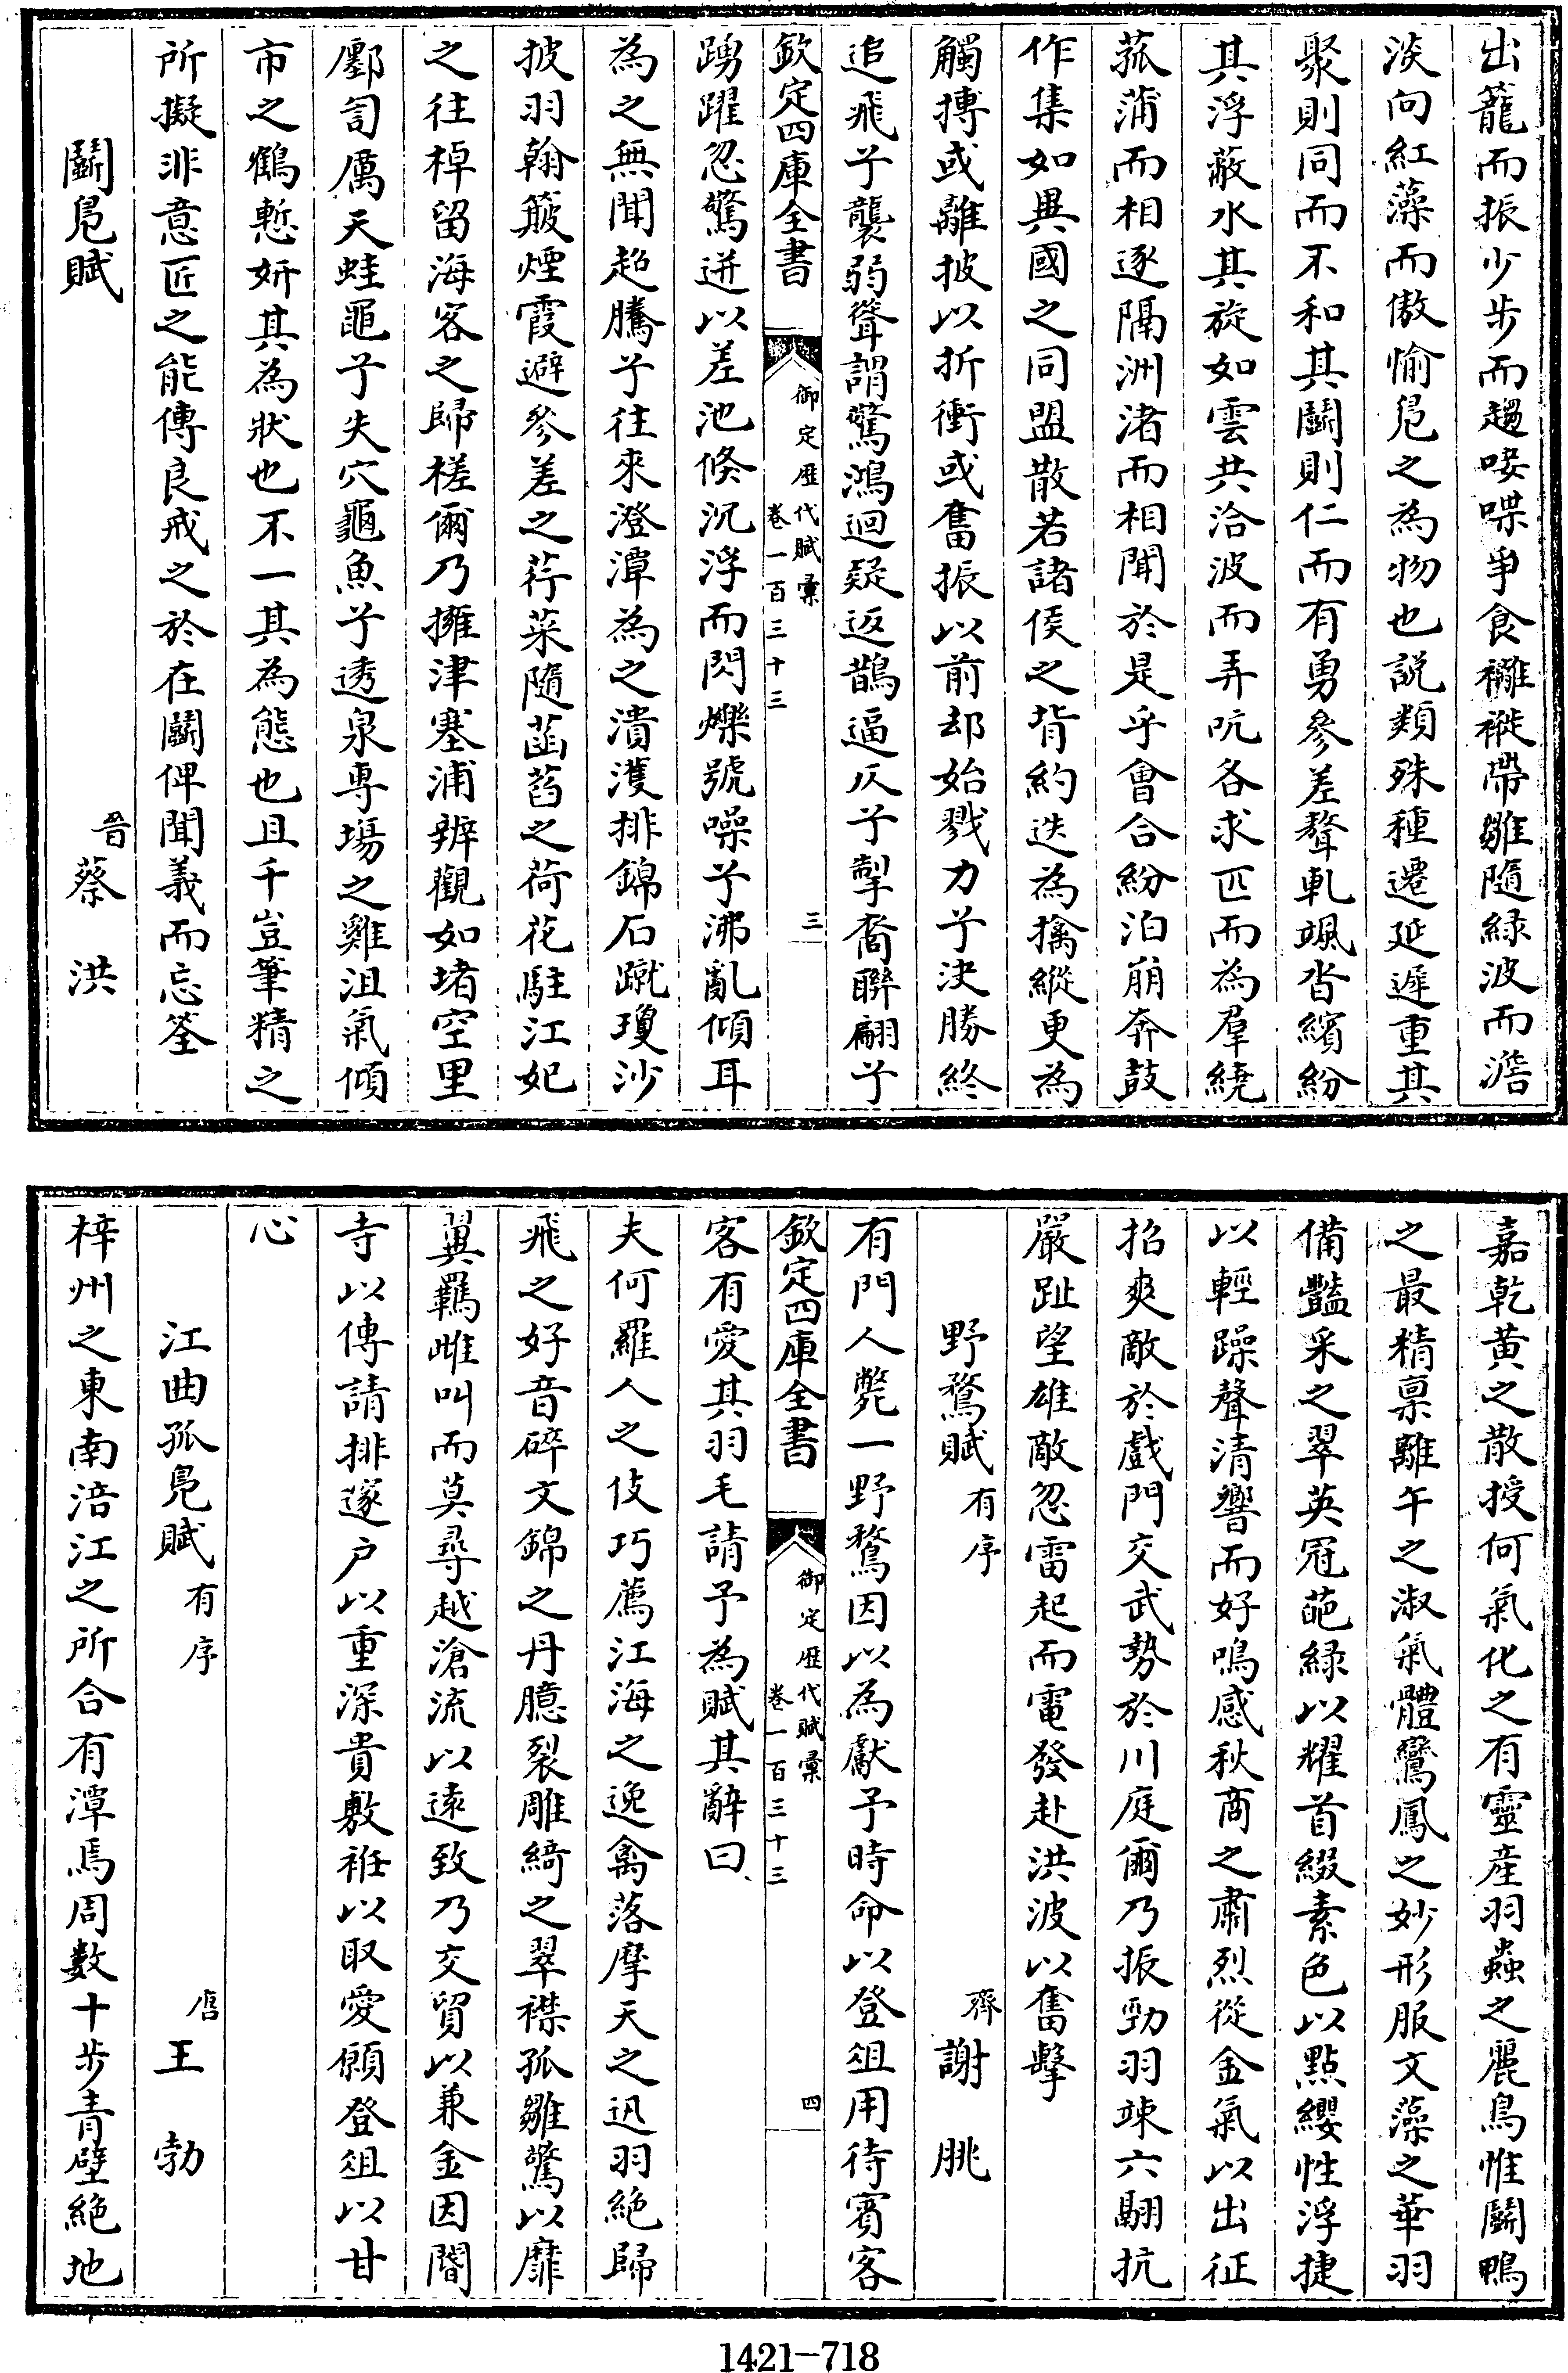 出籠而振少步而趨唼喋爭食襹褷帶雛隨緑波而澹
淡向紅藻而傲愉鳧之為物也説類殊種遷延遲重其
聚則同而不和其鬬則仁而有勇參差聱軋颯沓繽紛
其浮蔽水其旋如雲共洽波而弄吭各求匹而為羣繞
菰蒲而相逐隔洲渚而相聞於是乎會合紛泊崩奔鼓
作集如異國之同盟散若諸侯之背約迭為擒縱更為
觸搏或離披以折衝或奮振以前却始戮力兮決勝終
追飛兮襲弱聳謂驚鴻迴疑返鵲逼仄兮掣裔聯翩兮
欽定四庫全書
御定歴代賦彙
卷一百三十三
三
踴躍忽驚迸以差池倏沉浮而閃爍號噪兮沸亂傾耳
為之無聞超騰兮往來澄潭為之潰濩排錦石蹴瓊沙
披羽翰簸煙霞避參差之荇菜隨菡萏之荷花駐江妃
之往棹留海客之歸槎爾乃擁津塞浦辨觀如堵空里
鄽訇厲天蛙黽兮失穴龜魚兮透泉專場之雞沮氣傾
市之鶴慙妍其為狀也不一其為態也且千豈筆精之
所擬非意匠之能傳良戒之於在鬬俾聞義而忘筌
鬬鳧賦
晉蔡洪
嘉乾黄之散授何氣化之有靈産羽蟲之麗鳥惟鬬鴨
之最精稟離午之淑氣體鸞鳳之妙形服文藻之華羽
備豔采之翠英冠葩緑以耀首綴素色以點纓性浮捷
以輕躁聲清響而好鳴感秋商之肅烈從金氣以出征
招爽敵於戲門交武勢於川庭爾乃振勁羽竦六翮抗
嚴趾望雄敵忽雷起而電發赴洪波以奮擊
野鶩賦有序
齊謝朓
有門人斃一野鶩因以為獻予時命以登俎用待賓客
欽定四庫全書
御定歴代賦彙
卷一百三十三
四
客有愛其羽毛請予為賦其辭曰
夫何羅人之伎巧薦江海之逸禽落摩天之迅羽絶歸
飛之好音碎文錦之丹臆裂雕綺之翠襟孤雛驚以靡
翼羈雌叫而莫尋越滄流以遠致乃交貿以兼金因閽
寺以傳請排遂户以重深貴敷袵以取愛願登俎以甘
心
江曲孤鳧賦有序
唐王勃
梓州之東南涪江之所合有潭焉周數十步青壁絶地
1421—718